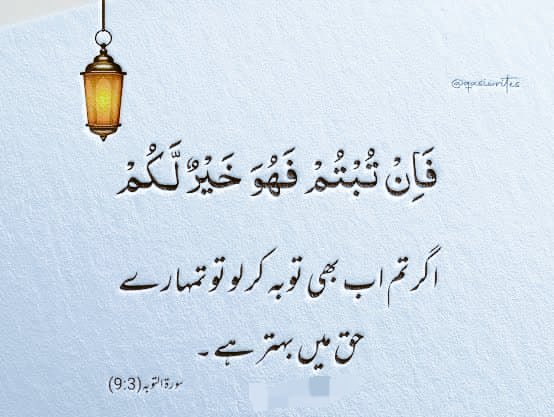 @qasiwrites
فَاِنْ تُبْتُمْ فَهُوَ خَيْرٌ لَّكُمْ
اگر تم اب بھی توبہ کر لو تو تمہارے
حق میں بہتر ہے۔
سورۃ التوبہ (9:3)